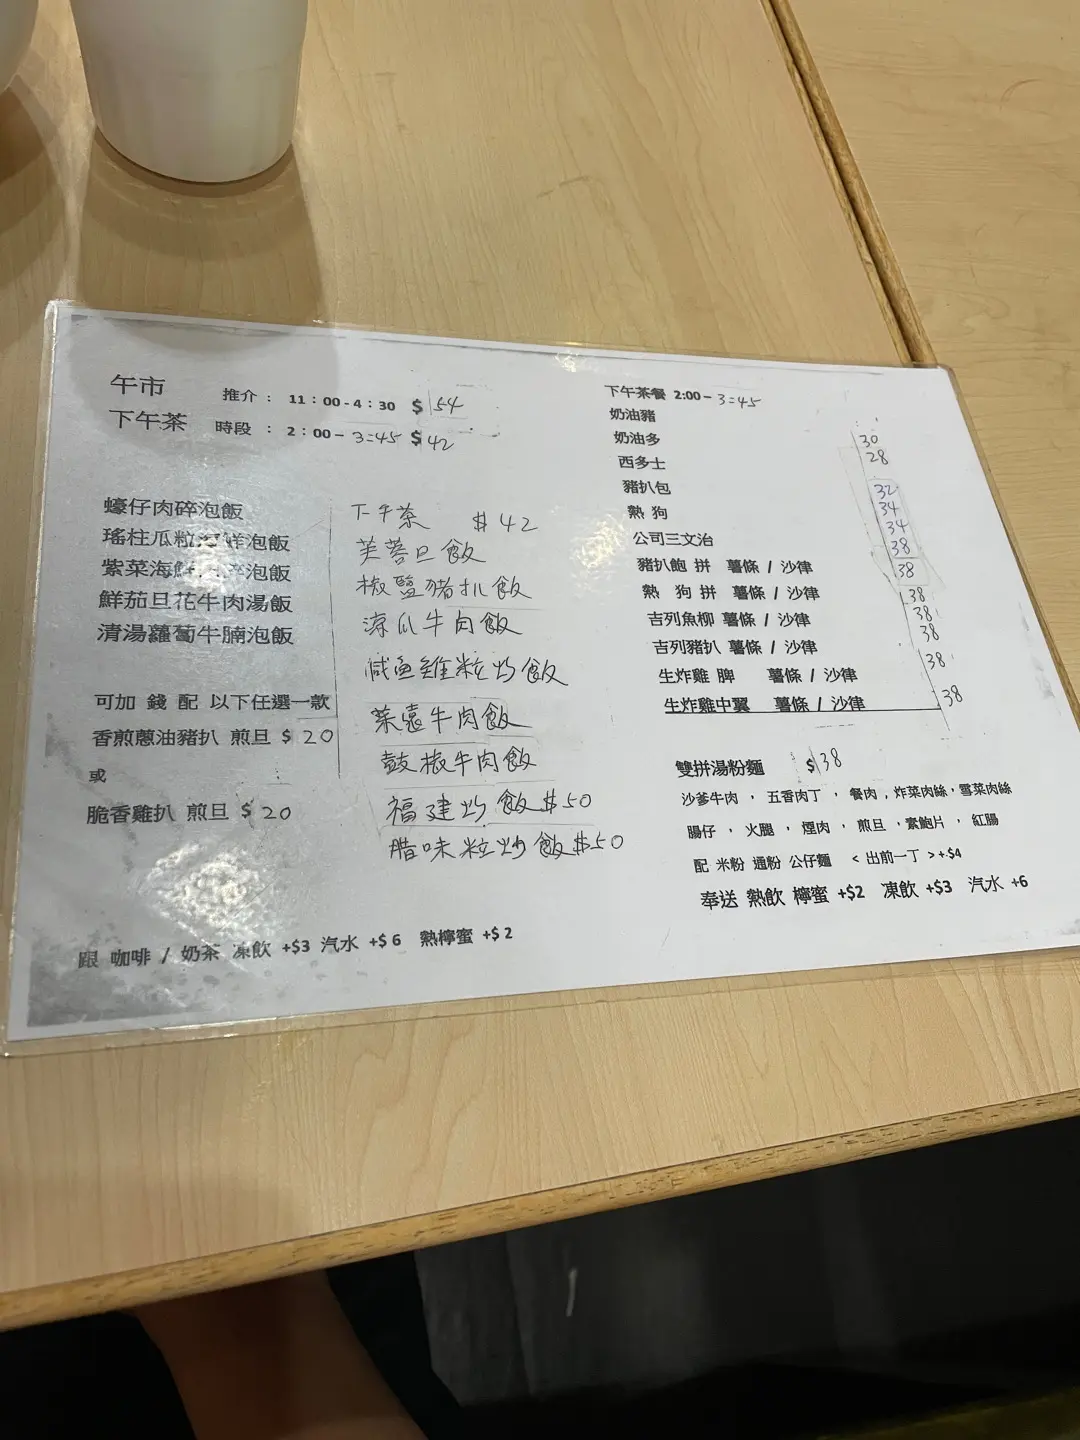 午市 推介： 11：00-4：30 $ 54
下午茶 時段 ： 2：00- 3:45 $ 42
蠔仔肉碎泡飯
瑤柱瓜粒海鮮泡飯
紫菜海鮮 泡飯
鮮茄旦花牛肉湯飯
清湯蘿蔔牛腩泡飯
可加 錢 配 以下任選一款
香煎蔥油豬扒 煎旦 $ 20
或
脆香雞扒 煎旦 $ 20
下午茶 $ 42
芙蓉旦飯
椒鹽豬扒飯
涼瓜牛肉飯
咸魚雞粒炒飯
菜遠牛肉飯
鼓椒牛肉飯
福建炒飯 $50
腊味粒炒飯 $50
跟 咖啡 / 奶茶 凍飲 +$3 汽水 +$ 6 熱檸蜜 +$ 2
下午茶餐 2:00- 3:45
奶油豬 30
奶油多 28
西多士 32
豬扒包 34
熱 狗 34
公司三文治 38
豬扒飽 拼 薯條 / 沙律 38
熱 狗 拼 薯條 / 沙律 38
吉列魚柳 薯條 / 沙律 38
吉列豬扒 薯條 / 沙律 38
生炸雞 脾 薯條 / 沙律 38
生炸雞中翼 薯條 / 沙律 38
雙拼湯粉麵 $38
沙爹牛肉 ， 五香肉丁 ， 餐肉 , 炸菜肉絲 , 雪菜肉絲
腸仔 ， 火腿 ， 煙肉 ， 煎旦 , 素鮑片 ， 紅腸
配 米粉 通粉 公仔麵 < 出前一丁 >+$4
奉送 熱飲 檸蜜 +$2 凍飲 +$3 汽水 +6